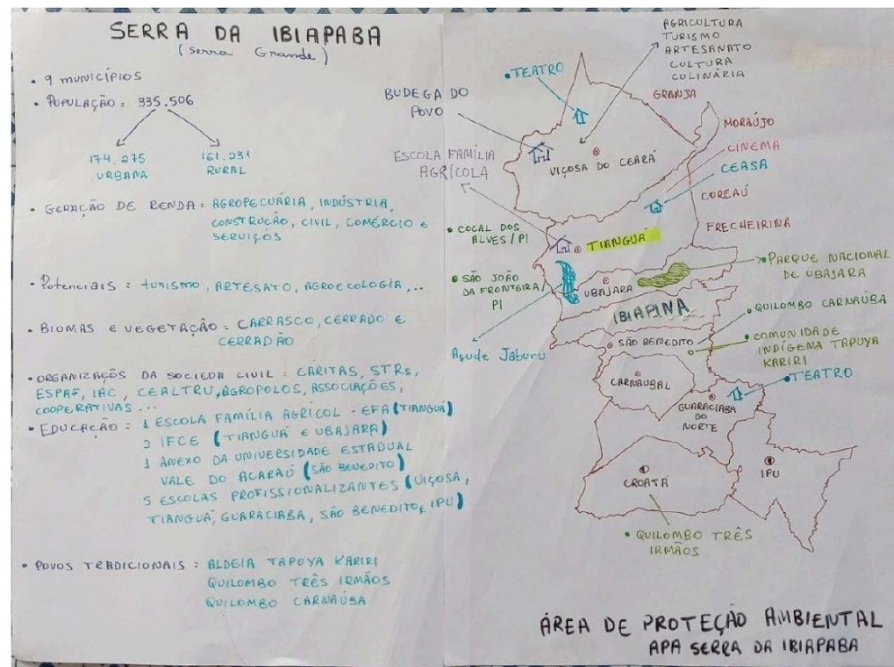 SERRA DA IBIAPABA
(Serra Grande)
• 9 MUNICÍPIOS
• POPULAÇÃO: 335.506
174.275
URBANA
161.231
RURAL
• GERAÇÃO DE RENDA: AGROPECUÁRIA, INDÚSTRIA,
CONSTRUÇÃO, CIVIL, COMÉRCIO E
SERVIÇOS
• Potenciais: TURISMO, ARTESATO, AGROECOLOGIA,...
• BIOMAS E VEGETAÇÃO: CARRASCO, CERRADO E
CERRADÃO
• ORGANIZAÇÕS DA SOCIEDA CIVIL: CÁRITAS, STRs,
ESPAF, IAC, CEALTRU, AGROPOLOS, ASSOCIAÇÕES,
COOPERATIVAS...
• EDUCAÇÃO: 1 ESCOLA FAMÍLIA AGRÍCOL - EFA (TIANGUÁ)
2 IFCE (TIANGUÁ E UBAJARA)
1 ANEXO DA UNIVERSIDADE ESTADUAL
VALE DO ACARAÚ (SÃO BENEDITO)
5 ESCOLAS PROFISSIONALIZANTES (VIÇOSA,
TIANGUÁ, GUARACIABA, SÃO BENEDITO, IPU)
• POVOS TRADICIONAIS: ALDEIA TAPUYA KARIRI
QUILOMBO TRÊS IRMÃOS
QUILOMBO CARNAÚBA
AGRICULTURA
TURISMO
ARTESANATO
CULTURA
CULINÁRIA
• TEATRO
BUDEGA DO
POVO
GRANJA
MORAÚJO
ESCOLA FAMÍLIA
AGRÍCOLA
VIÇOSA DO CEARÁ
CINEMA
CEASA
COREAÚ
• COCAL DOS
ALVES/PI
TIANGUÁ
FRECHEIRINA
• SÃO JOÃO
DA FRONTEIRA/
PI
UBAJARA
PARQUE NACIONAL
DE UBAJARA
IBIAPINA
• QUILOMBO CARNAÚBA
SÃO BENEDITO
• COMUNIDADE
INDÍGENA TAPUYA
KARIRI
Açude Jaburu
CARNAUBAL
• TEATRO
GUARACIABA
DO
NORTE
CROATÁ
IPU
• QUILOMBO TRÊS
IRMÃOS
ÁREA DE PROTEÇÃO AMBIENTAL
APA SERRA DA IBIAPABA